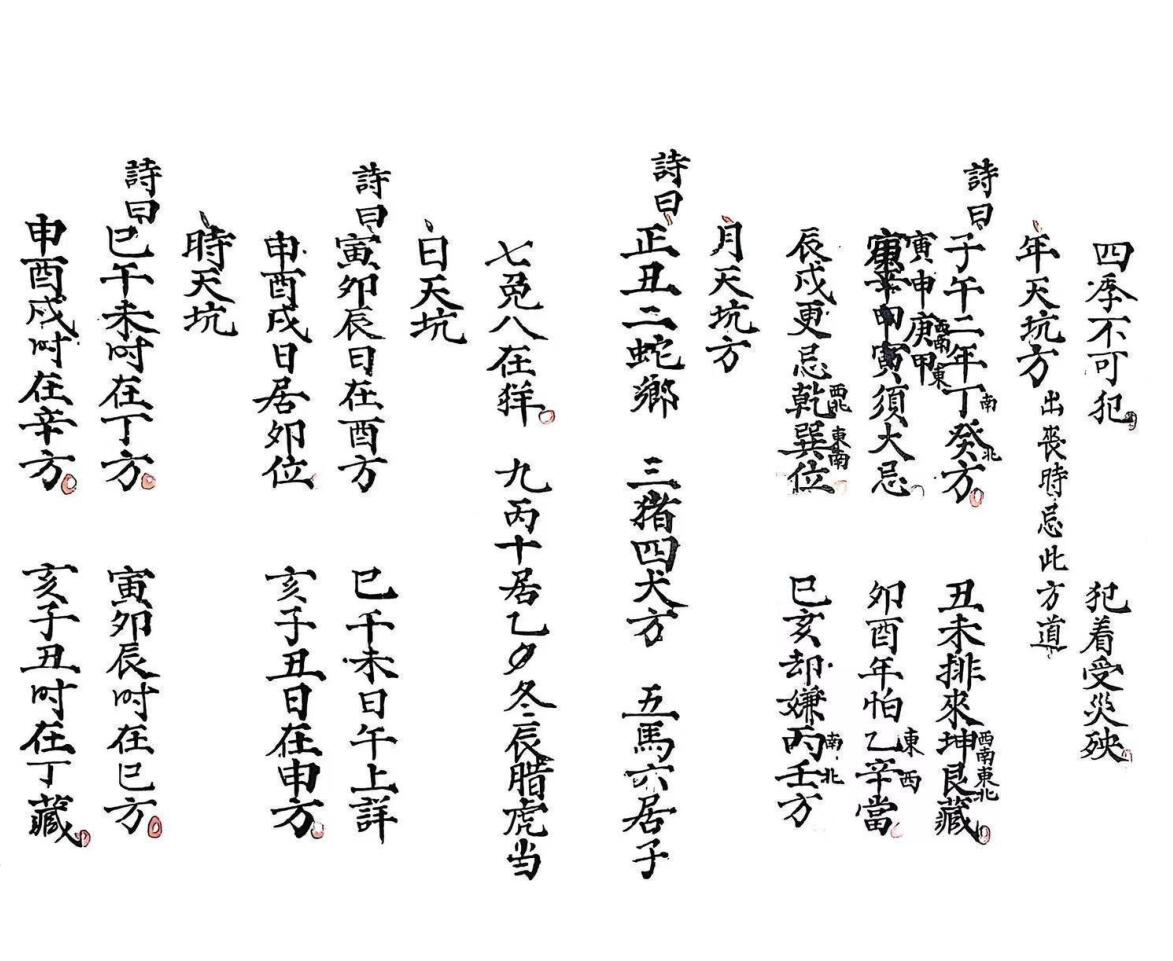 四季不可犯　犯着受災殃
年天坑方　出喪時忌此方道
詩曰　子午二年丁南癸北方　丑未排來坤西南艮東北藏
寅申庚西南甲東
寅申寅須大忌　卯酉年怕乙東辛西當
辰戍更忌乾西北巽東南位　巳亥却嫌丙南壬北方
月天坑方
詩曰　正丑二蛇鄉　三猪四犬方　五馬六居子
七兔八在羊　九丙十居乙　冬辰腊虎当
日天坑
詩曰　寅卯辰日在酉方　巳午未日午上詳
申酉戍日居卯位　亥子丑日在申方
時天坑
詩曰　巳午未时在丁方　寅卯辰时在巳方
申酉戍时在辛方　亥子丑时在丁藏